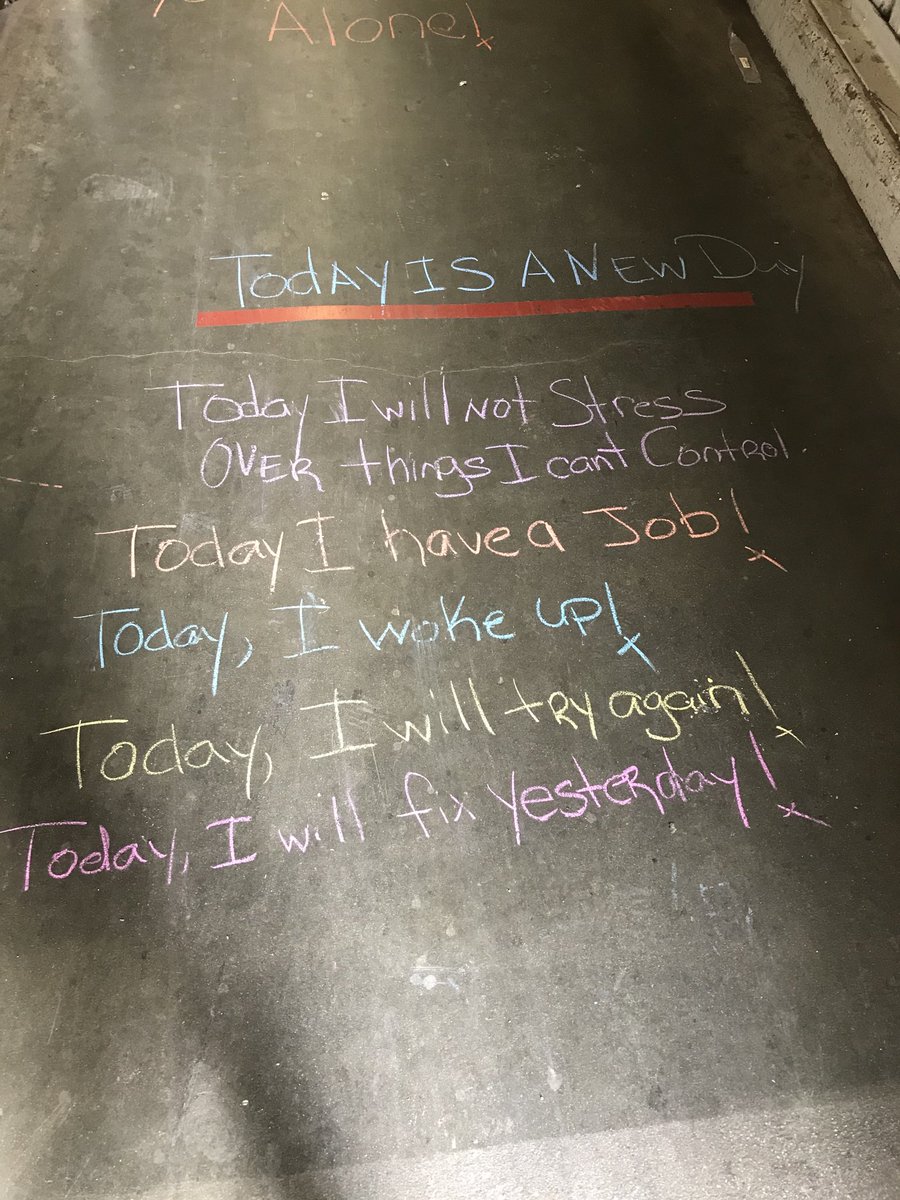 Alone!
TodAY IS A NEW Day
Today I will Not Stress
OVER things I cant Control.
Today I have a Job!
Today, I woke up!
Today, I will tRy again!
Today, I will fix yesteRday!